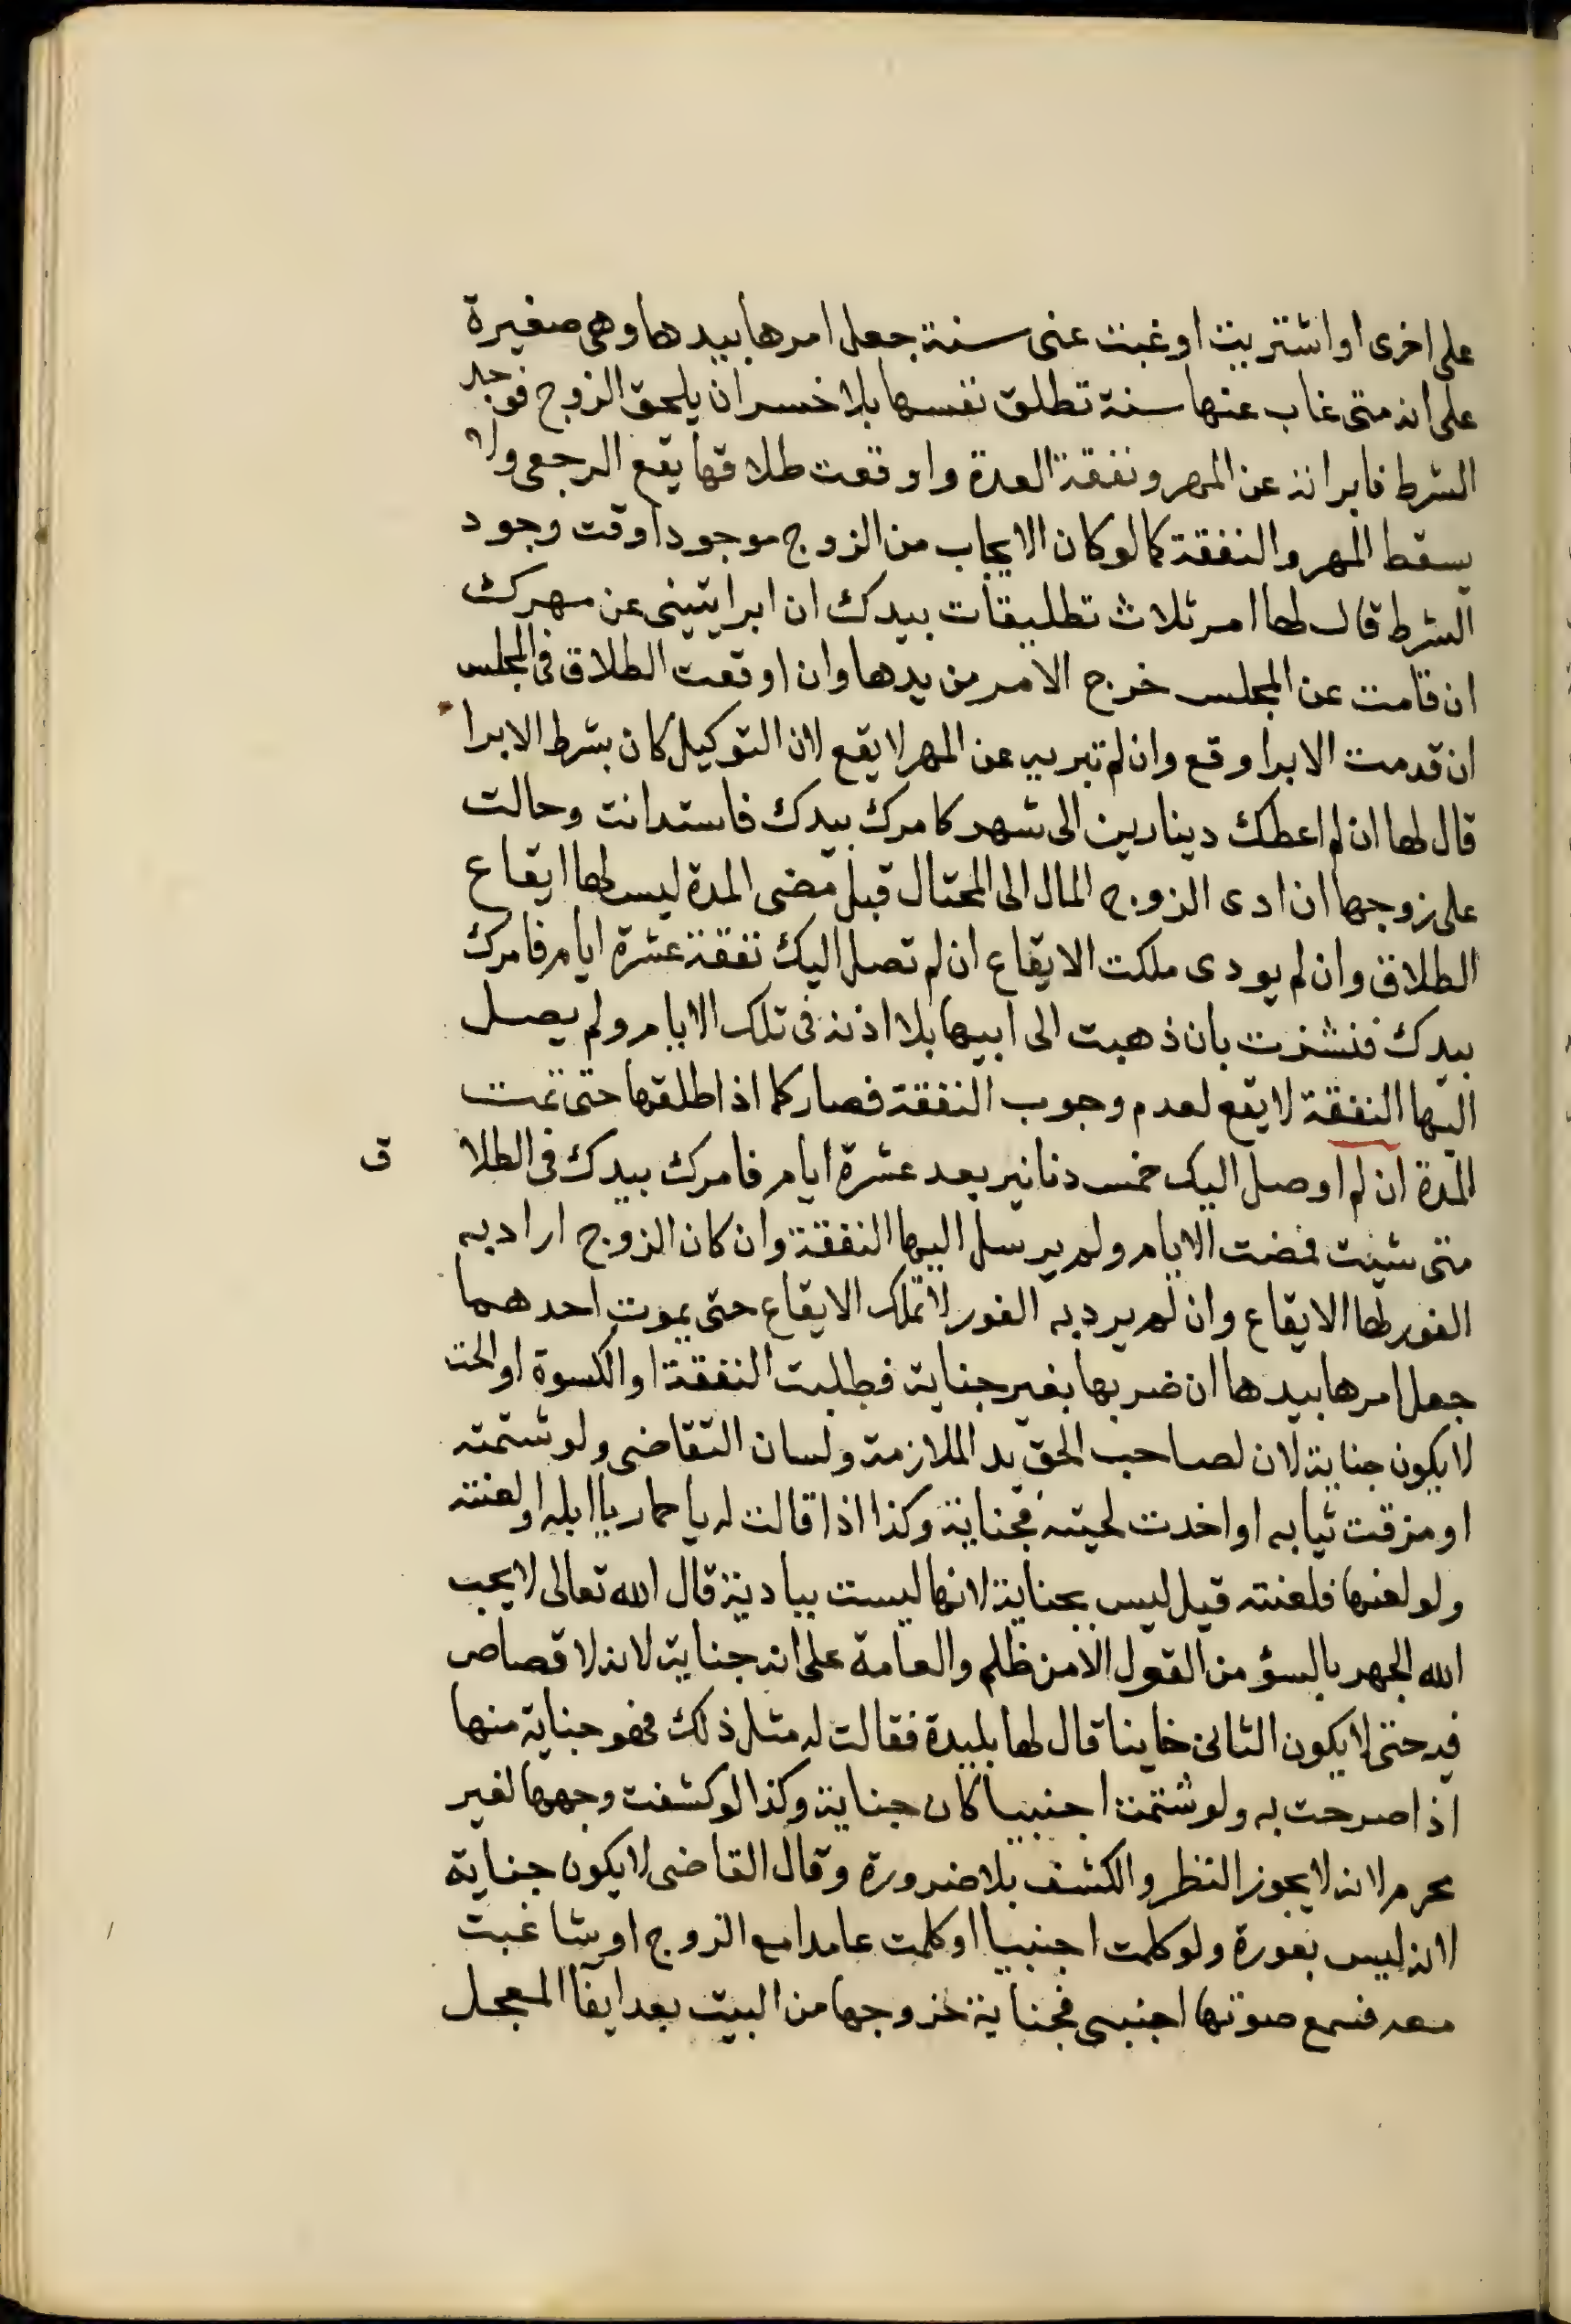 على اخرى او اشتريت او غبت عنى سنة جعل امرها بيدها وهى صغيرة
على انه متى غاب عنها سنة تطلق نفسها بلا خسران يلحق الزوج فوجد
الشرط فابراته عن المهر ونفقة العدة واوقعت طلاقها يقع الرجعى ولا
يسقط المهر والنفقة كما لو كان الايجاب من الزوج موجودا وقت وجود
الشرط قال لها امر ثلاث تطليقات بيدك ان ابرايتينى عن مهرك
ان قامت عن المجلس خرج الامر من يدها وان اوقعت الطلاق فى المجلس
ان قدمت الابرا وقع وان لم تبريه عن المهر لا يقع لان التوكيل كان بشرط الابرا
قال لها ان لم اعطك دينارين الى شهر كامرك بيدك فاستدانت وحالت
على زوجها ان ادى الزوج المال الى المحتال قبل مضى المدة ليس لها ايقاع
الطلاق وان لم يودى ملكت الايقاع ان لم تصل اليك نفقة عشرة ايام فامرك
بيدك فنشزت بان ذهبت الى ابيها بلا اذنه فى تلك الايام ولم يصل
اليها النفقة لا يقع لعدم وجوب النفقة فصار كما اذا طلقها حتى تمت
المدة ان لم اوصل اليك خمس دنانير بعد عشرة ايام فامرك بيدك فى الطلا ق
متى شيت فمضت الايام ولم يرسل اليها النفقة وان كان الزوج اراد به
الفور لها الايقاع وان لم يرد به الفور لا تملك الايقاع حتى يموت احدهما
جعل امرها بيدها ان ضربها بغير جناية فطلبت النفقة او الكسوة او الحت
لا يكون جناية لان لصاحب الحق يد الملازمة ولسان التقاضى ولو شتمته
او مزقت ثيابه او اخذت لحيته فجناية وكذا اذا قالت له يا حمار يا ابله او لعنته
ولو لعنها فلعنته قيل ليس بجناية لانها ليست ببادية قال الله تعالى لا يحب
الله الجهر بالسؤ من القول الا من ظلم والعامة على انه جناية لانه لا قصاص
فيه حتى لا يكون الثانى خاينا قال لها بليدة فقالت له مثل ذلك فهو جناية منها
اذا صرحت به ولو شتمت اجنبيا كان جناية وكذا لو كشفت وجهها لغير
محرم لانه لا يجوز النظر والكشف بلا ضرورة وقال القاضى لا يكون جناية
لانه ليس بعورة ولو كلمت اجنبيا او كلمت عامدا مع الزوج او شاغبت
معه فسمع صوتها اجنبى فجناية خروجها من البيت بعد ايفا المعجل